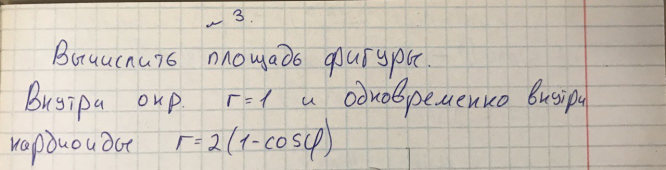 ~ 3.
Вычислить площадь фигуры.
Внутри окр. r=1 и одновременно внутри
кардиоиды r=2(1-cosφ)